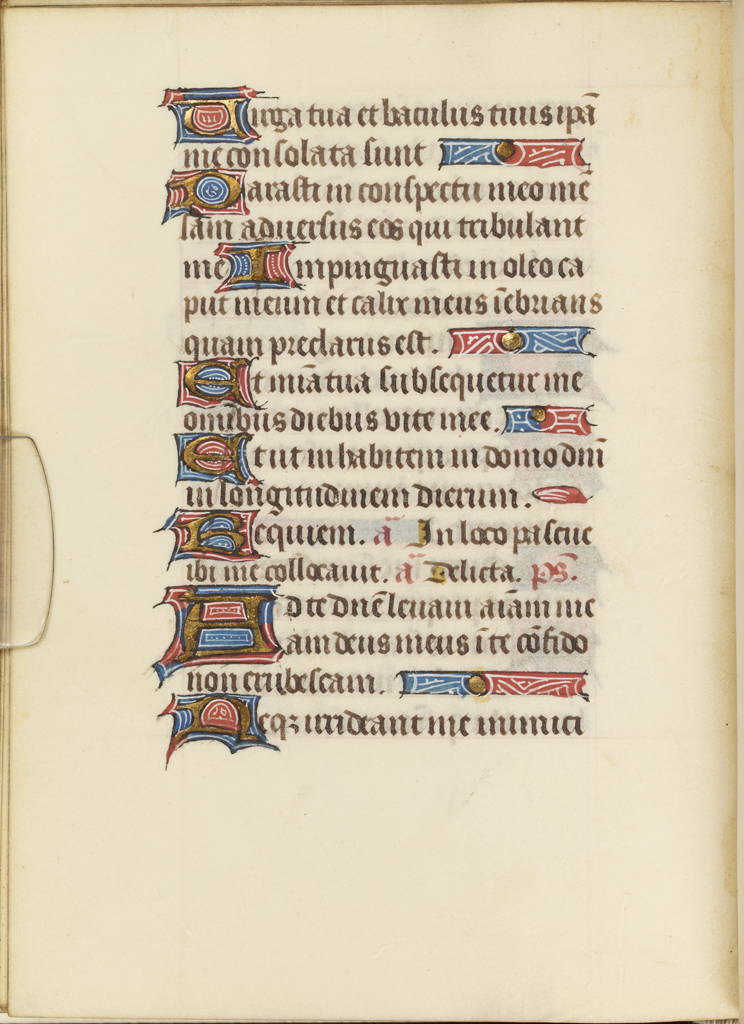 Uirga tua et baculus tuus ipā
me consolata sunt
Parasti in conspectu meo mē
sam aduersus eos qui tribulant
me Impinguasti in oleo ca
put meum et calix meus īebrians
quam preclarus est.
Et miā tua subsequetur me
omībus diebus vite mee.
Et ut inhabitem in domo dnī
in longitudinem dierum.
Requiem. aͣ In loco pascue
ibi me collocauit. aͣ Delicta. pS̄.
Ad te dnē leuaui aīam me
am deus meus ī te cōfido
non erubescam.
Neqꝫ irrideant me inimici